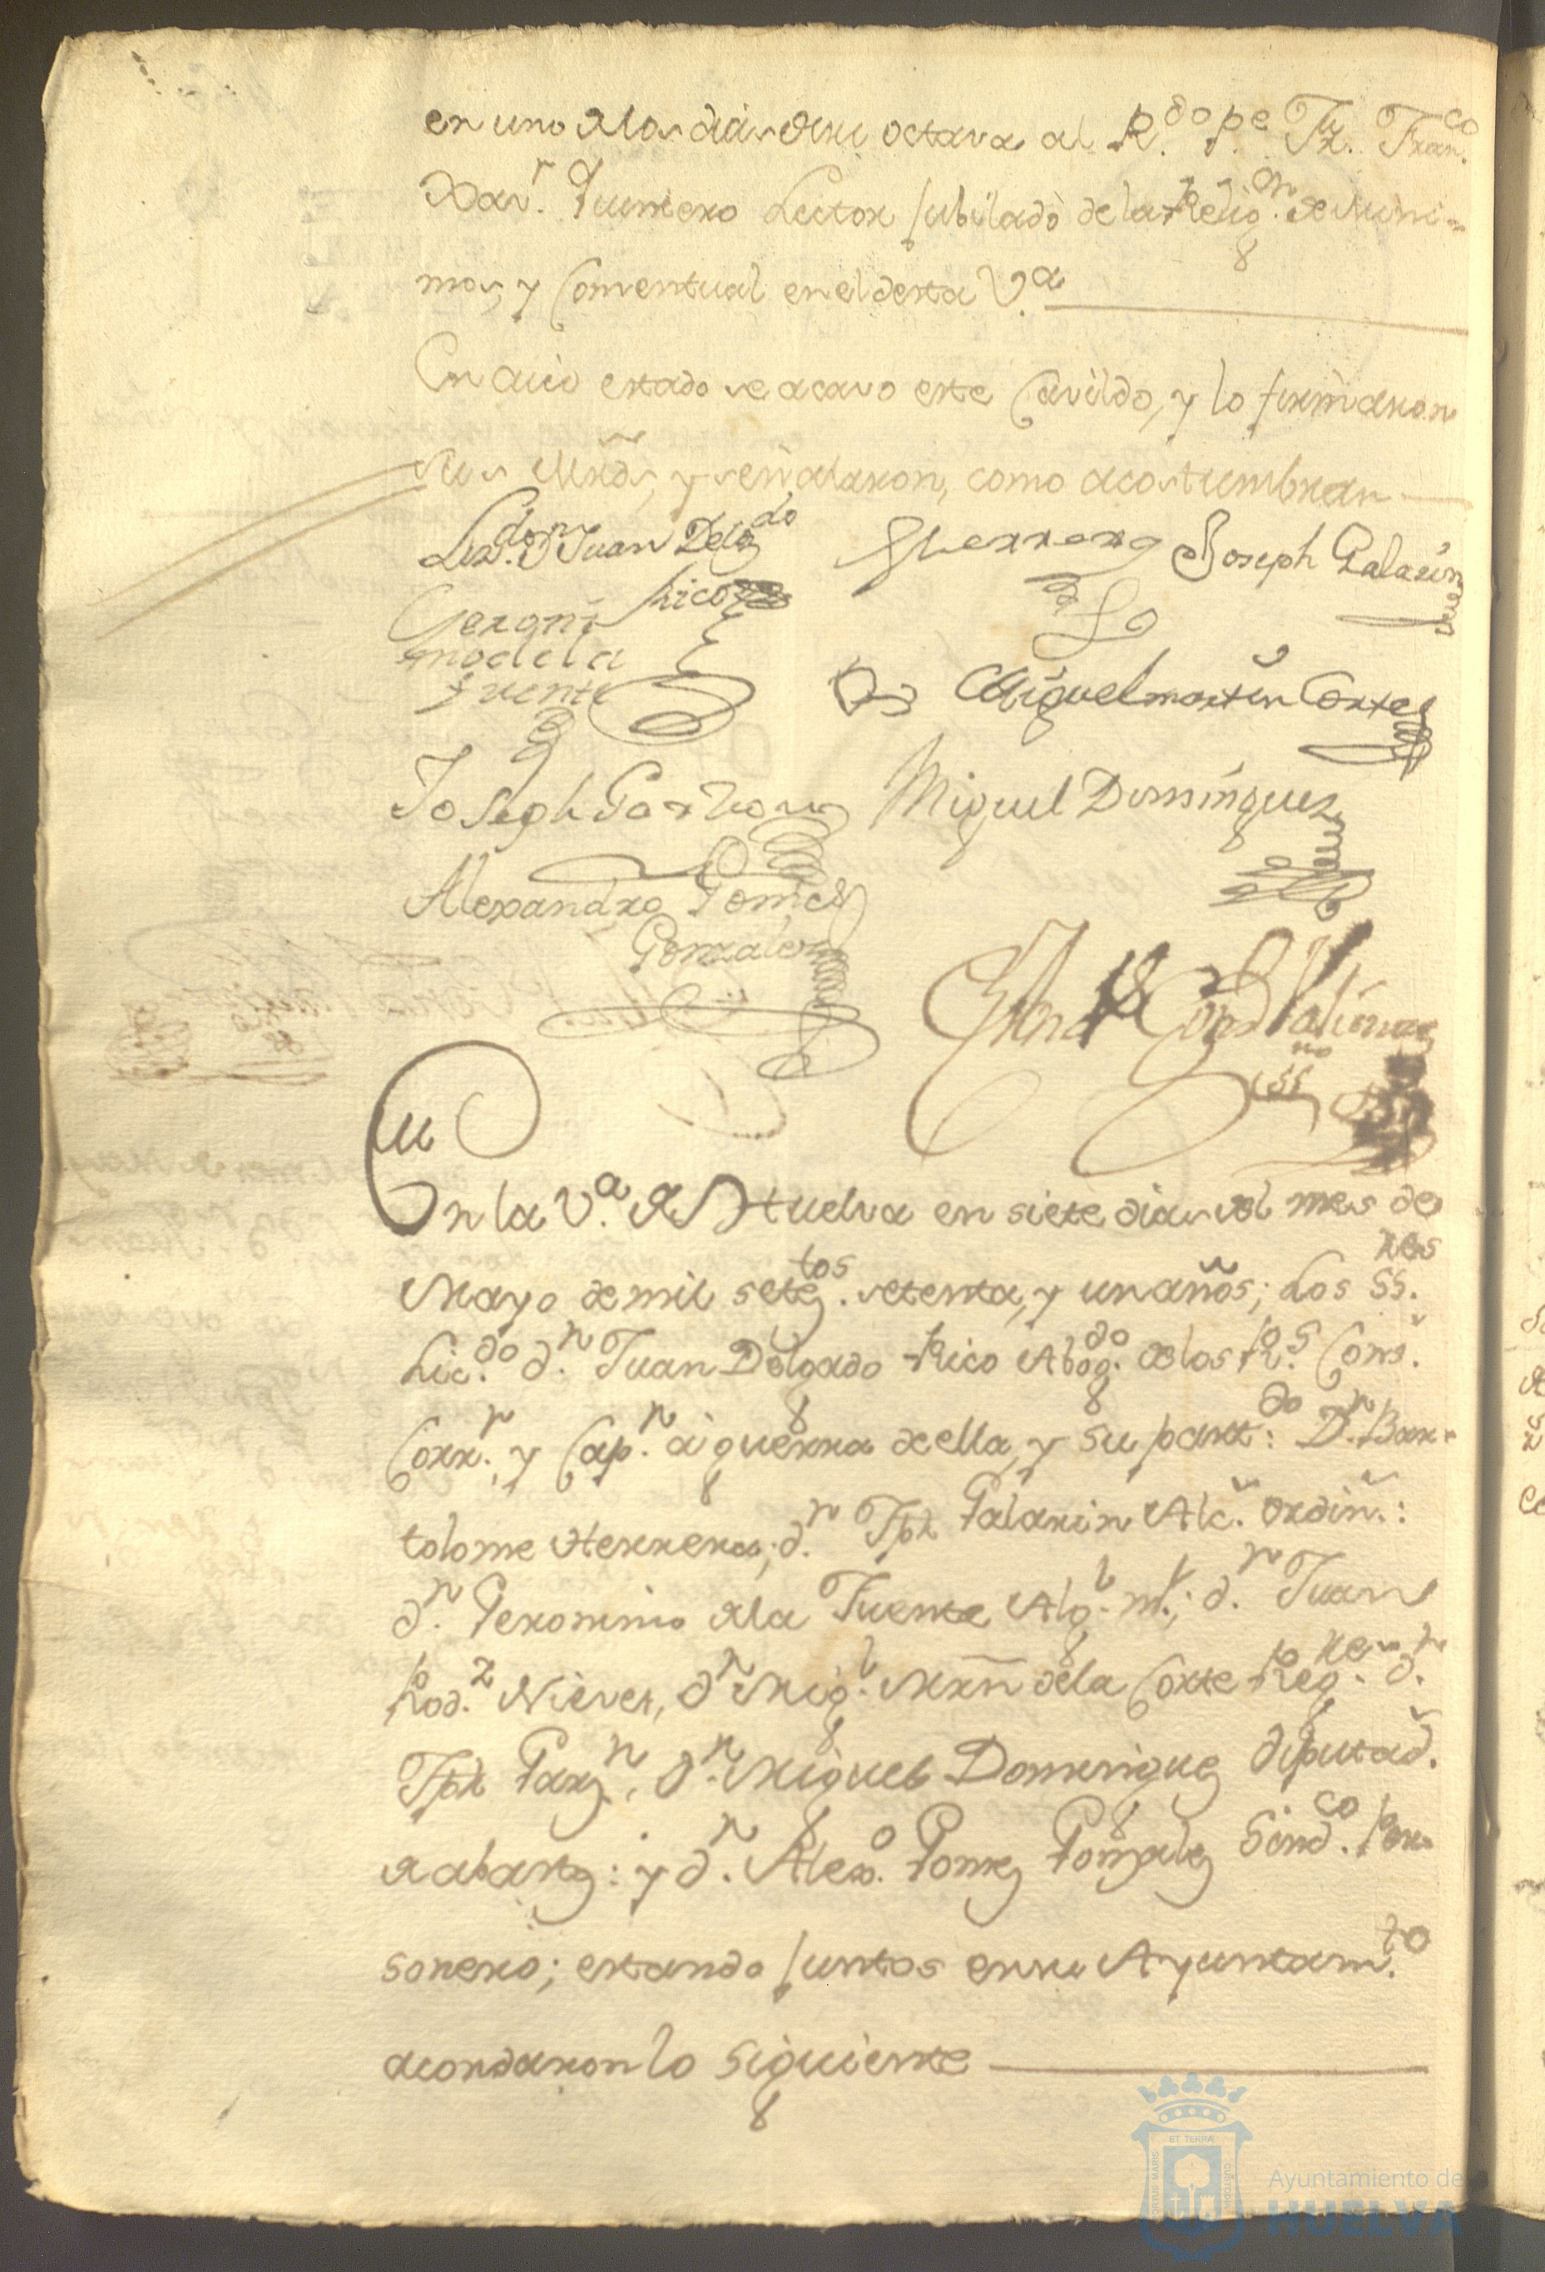 en uno de los dias de su octava al R.do P.e Fr. Fran.co
Xav.r Rumero Lector Jubilado de la Relig.on de Mini-
mos, y Comventual en el desta V.a
En cuio estado se acavo este Cavildo, y lo firmaron
sus Mrds, y señalaron, como acostumbran
Lizdo. Dn Juan Delgdo
Rico
Herrera
Joseph Galarin
Geroni
mo de la
Fuente
Miguel martin Cortes
Joseph Garzon
Miguel Dominguez
Alexandro Gomes
Gonzales
En la V.a de Huelva en siete dias del mes de
Mayo de mil setez.tos setenta, y un años; Los SS.res
Lic.do d.n Juan Delgado Rico Abog.do de los R.s Cons.
Corr.r y Cap.n à guerra de ella, y su part.do D.n Bar-
tolome Herrera; d.n Jph Galarin Alc. ordin.:
d.n Geronimo de la Fuente Alg.l m.r; d.n Juan
Rod.z Nieves, d.n Mig.l Mrn de la Corte Reg.res d.n
Jph Garz.n, d.n Miguel Dominguez diputad.
de abastos: y d.n Alex.o Gomez Gonzalez Sind.co Per-
sonero; estando Juntos en su Ayuntam.to
acordaron lo siguiente
Ayuntamiento de
HUELVA